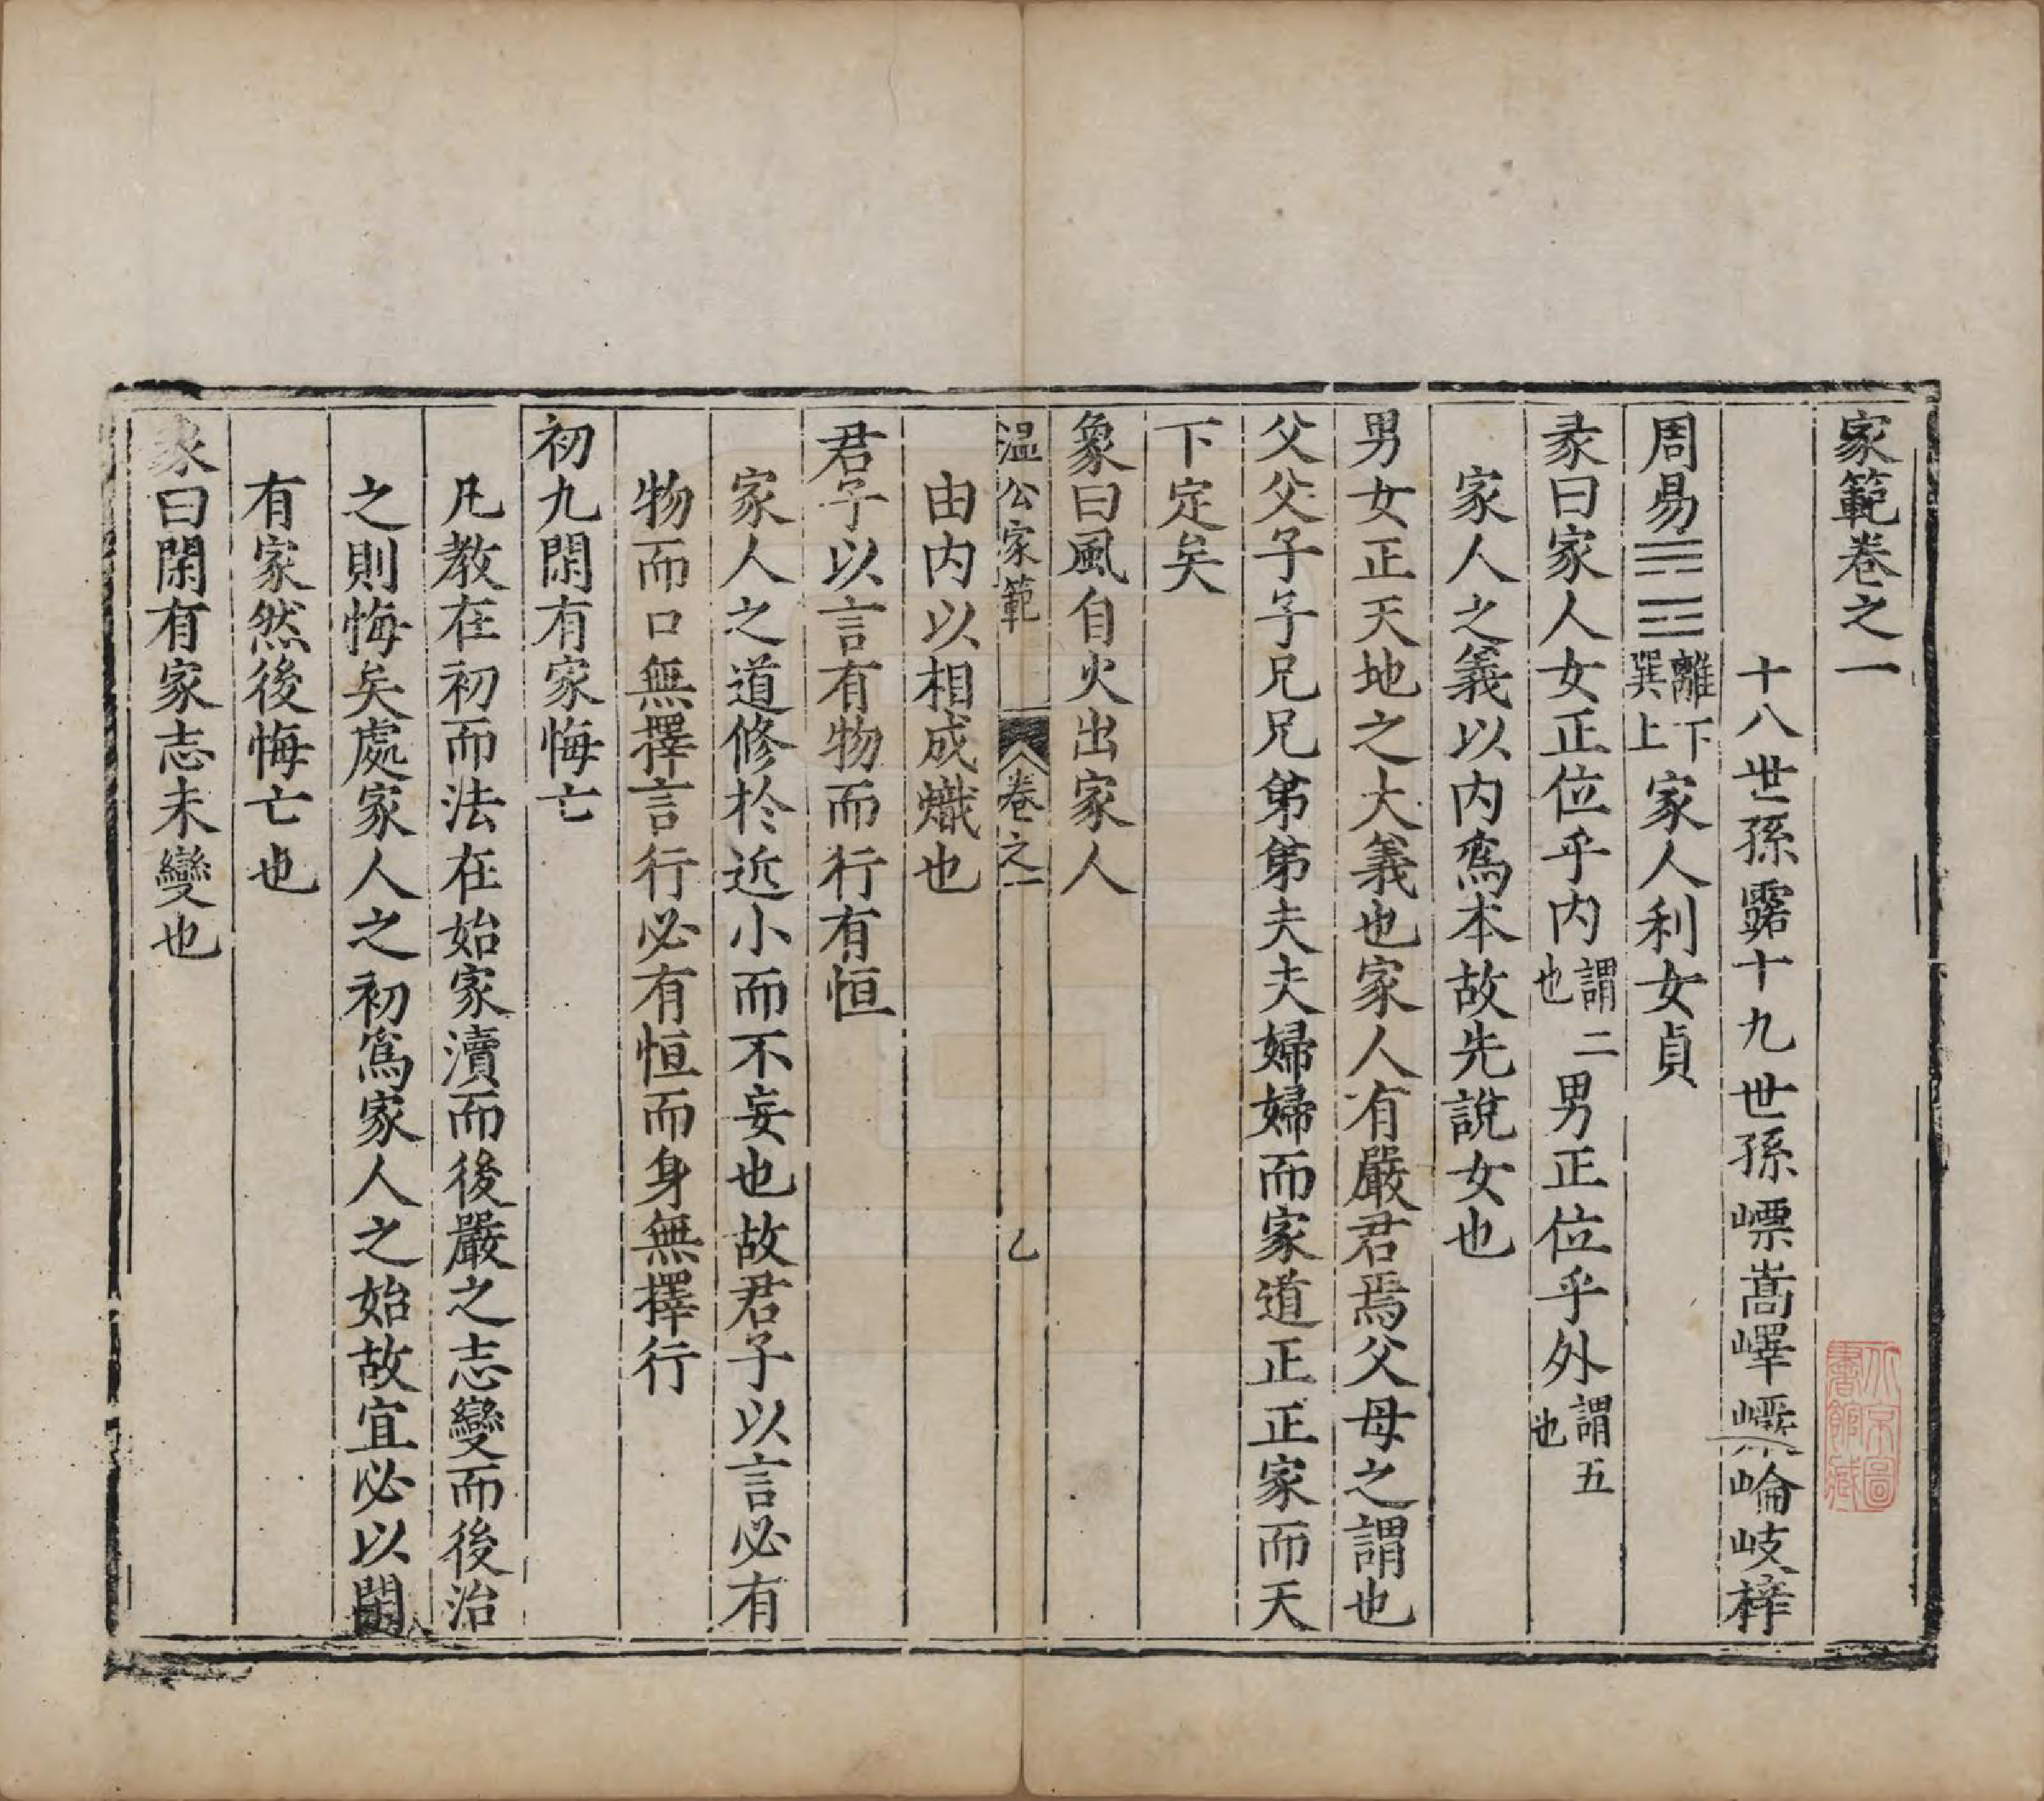 家範卷之一
十八世孫露十九世孫嶫嵩嶧崘岐梓
周易䷤離下巽上家人利女貞
彖曰家人女正位乎內謂二也男正位乎外謂五也
家人之義以內爲本故先說女也
男女正天地之大義也家人有嚴君焉父母之謂也
父父子子兄兄弟弟夫夫婦婦而家道正正家而天
下定矣
象曰風自火出家人
溫公家範 卷之一 乙
由內以相成熾也
君子以言有物而行有恒
家人之道修於近小而不妄也故君子以言必有
物而口無擇言行必有恒而身無擇行
初九閑有家悔亡
凡教在初而法在始家瀆而後嚴之志變而後治
之則悔矣處家人之初爲家人之始故宜必以閑
有家然後悔亡也
象曰閑有家志未變也